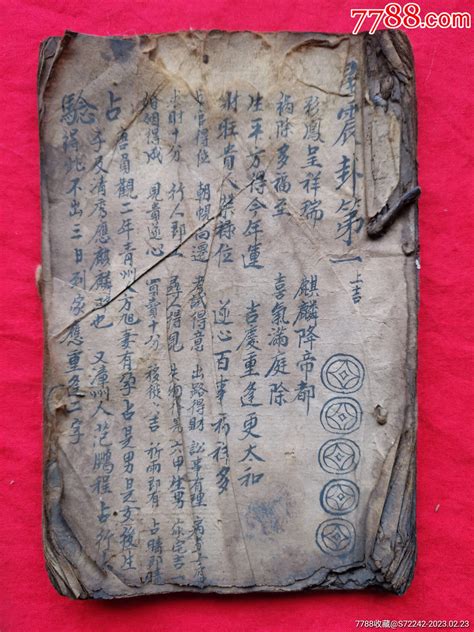 7788.com
星震卦第一 上吉
彩鳳呈祥瑞 麒麟降帝都
禍除多福至 喜氣滿庭除
生平方得今年運 吉慶重逢更太和
財旺貴人榮祿位 逆心百事有祥多
占官得位 朝帆向邊 考試得意 出路得財 訟事有理 病
求財十分 行人即至 尋人得見 失物 六甲生男 家宅吉
婚姻得成 見貴 心 買賣十分 移徙 吉 祈雨即有 占晴即晴
占 唐貞觀二年青州 方旭妻有孕占是男是女後生
子及清秀應麒麟 也 又漳州人范鵬程占行
驗 得此不出三日到家應重逢二字
7788收藏@S72242-2023.02.23